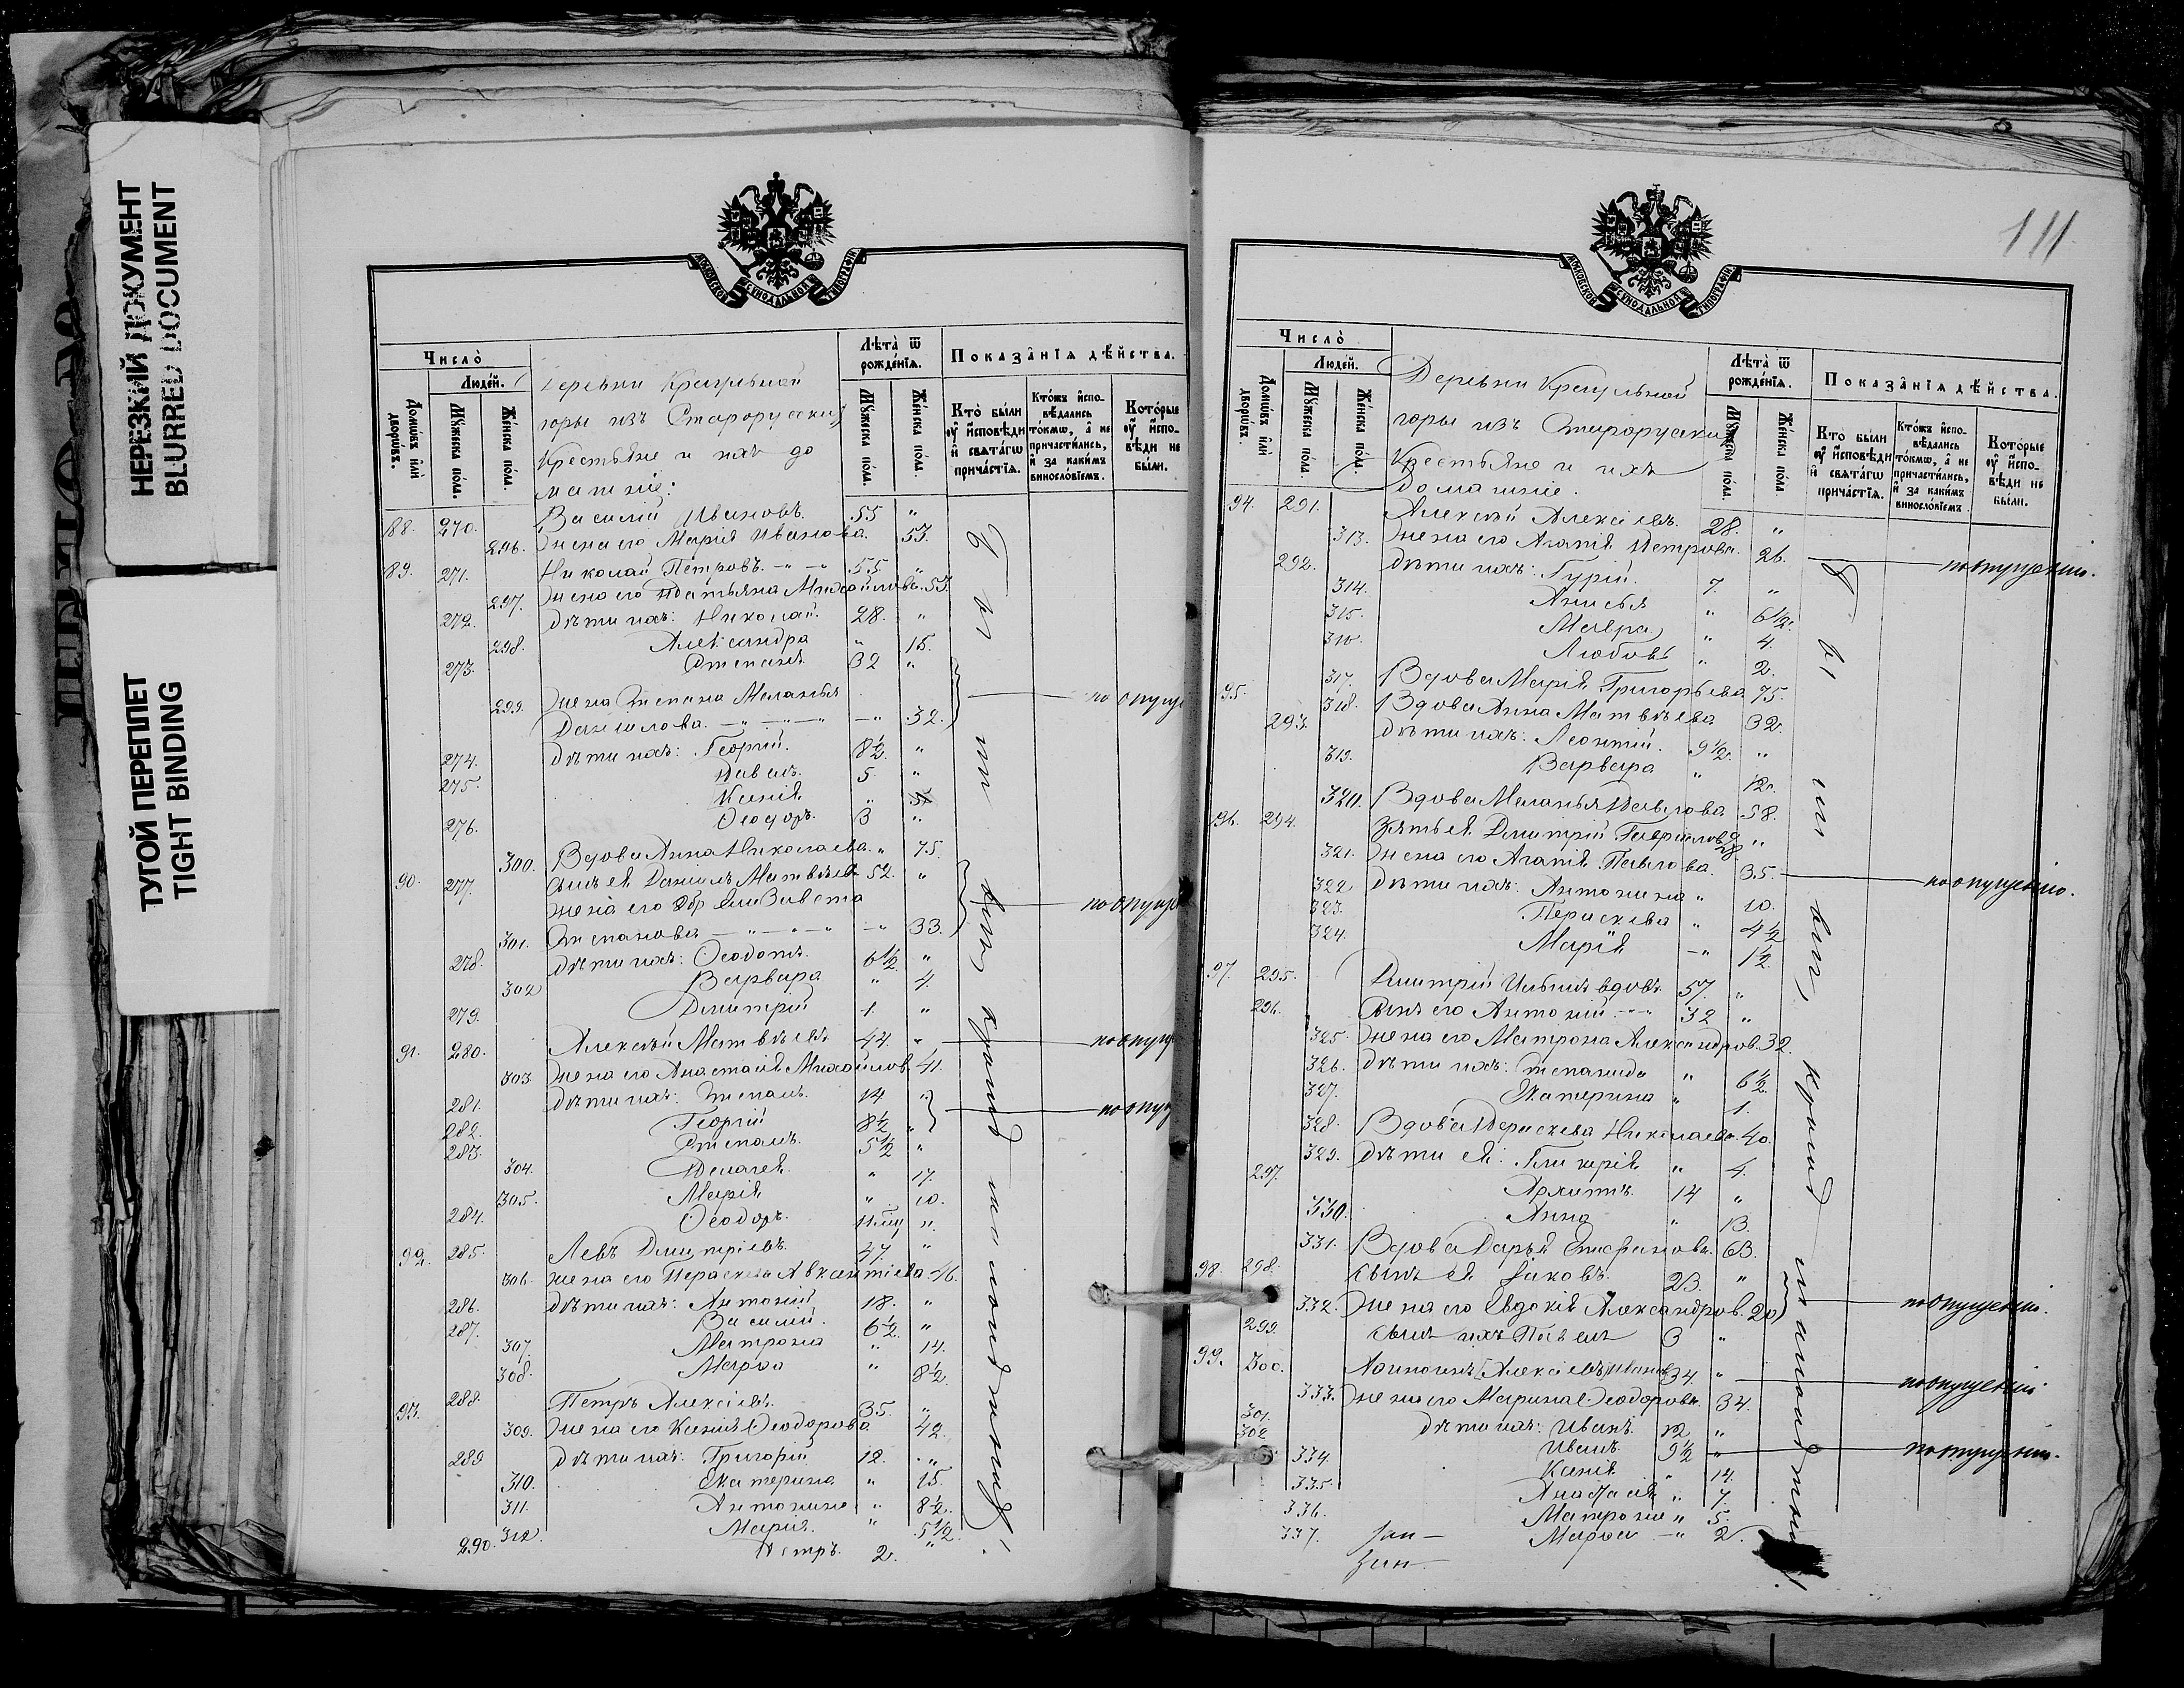 НЕРЕЗКИЙ ДОКУМЕНТ
BLURRED DOCUMENT
ТУГОЙ ПЕРЕПЛЕТ
TIGHT BINDING
МОСКОВСКОЙ СѴНОДАЛЬНОЙ ТИПОГРАФІИ
Число̀
Людей.
Домѡвъ и҆лѝ дворѡвъ.
Мꙋ́жеска по́ла.
Же́нска по́ла.
Деревни
горы изъ Старорусских
Крестьяне и ихъ до
машніе:
Лѣта̀ ѿ рожде́нїѧ.
Мꙋ́жеска по́ла.
Же́нска по́ла.
Показа̂нїѧ дѣ́йства.
Кто̀ бы́ли ᲂу҆ и҆сповѣди и҆ свѧта́гѡ прича́стїѧ.
Кто́жъ и҆спо-вѣдались то́кмѡ, а҆ не причасти́лись, и҆ за каки́мъ винослові́емъ.
Кото́рые ᲂу҆ и҆спо-вѣди не бы́ли.
88. 270. Василій Ивановъ. 55 "
296. Жена его Марія Иванова. 53.
89. 271. Николай Петровъ. — " — " 55 "
297. Жена его Татьяна Михайлова. 53
272. Дѣти ихъ: Николай. 28. "
298. Александра " 15.
273. Степанъ 32 "
299. Жена Степана Меланья
Данилова. — " — " — — " 32.
274. Дѣти ихъ: Георгій. 8½ "
275. Павелъ. 5. "
Ксенія "
276. Ѳеодоръ. 3 "
300. Вдова Анна Николаева. " 75.
90. 277. Сынъ ея Даніилъ Матвѣевъ 52. "
Жена его 2 бр Елизавета
301. Степанова — " — " — " — " 33. по опущ
278. Дѣти ихъ: Ѳеодотъ. 6½ "
302 Варвара " 4.
279. Дмитрій 1. "
91. 280. Алексѣй Матвѣевъ 44. " по опущ
303. Жена его Анастасія Михайлов. 41.
281. Дѣти ихъ: Степанъ. 14 "
282. Георгій 8½ " по опущ
283. Степанъ. 5½ "
304. Пелагея. " 17.
305. Марія " 10.
284. Ѳеодоръ. "
92. 285. Левъ Дмитріевъ. 47 "
306. Жена его Параскева Авксентіева. 46.
286. Дѣти ихъ: Антоній 18. "
287. Василій. 6½ "
307. Матрона " 14.
308. Марѳа " 8½
93. 288. Петръ Алексіевъ. 35. "
309. Жена его Ксенія Ѳеодорова 42.
289 Дѣти ихъ: Григорій 12. "
310. Екатерина " 15.
311. Антонина " 8½.
312. Марія. " 5½.
290. Петръ. 2. "
Были
кромѣ
111
МОСКОВСКОЙ СѴНОДАЛЬНОЙ ТИПОГРАФІИ
Число̀
Людей.
Домѡвъ и҆лѝ дворѡвъ.
Мꙋ́жеска по́ла.
Же́нска по́ла.
Деревни
горы изъ Старорусских
Крестьяне и ихъ
домашніе.
Лѣта̀ ѿ рожде́нїѧ.
Мꙋ́жеска по́ла.
Же́нска по́ла.
Показа̂нїѧ дѣ́йства.
Кто̀ бы́ли ᲂу҆ и҆сповѣди и҆ свѧта́гѡ прича́стїѧ.
Кто́жъ и҆спо-вѣдались то́кмѡ, а҆ не причасти́лись, и҆ за каки́мъ винослові́емъ.
Кото́рые ᲂу҆ и҆спо-вѣди не бы́ли.
94. 291. Алексѣй Алексіевъ. 28. "
313. Жена его Агапія Петрова. 26. по опущенію.
292. Дѣти ихъ: Гурій. 7. "
314. Анисья " 6½.
315. Мавра " 4.
316. Любовь " 2.
95. 317. Вдова Марія Григорьева 75.
318. Вдова Анна Матвѣева 32.
293 Дѣти ихъ: Леонтій. 9½. "
319. Варвара " 12.
320. Вдова Меланья Павлова 58.
96. 294. Зять ея Дмитрій Гавриловъ 28 "
321. Жена его Агапія Павлова. 35. по опущенію.
322 Дѣти ихъ: Антонина " 10.
323. Параскева " 4½
324. Марія — " 1½.
97. 295. Дмитрій Ильинъ вдовъ 57. "
296. Сынъ его Антоній. — " — 32 "
325. Жена его Матрона Александров. 32.
326. Дѣти ихъ: Степанида " 6½
327. Екатерина " 1.
328. Вдова Параскева Николаева 40.
329. Дѣти ея: Гликерія " 4.
297. Архипъ. 14 "
330. Анна " 13.
331. Вдова Дарья Стефанова. 63.
98. 298. Сынъ ея Іаковъ. 23. "
332. Жена его Евдокія Александров. 20 по опущенію.
299. Сынъ ихъ Павелъ 3 "
99. 300. Алексіевъ 34. " по опущенію
333. Жена его Марина Ѳеодорова. 34.
301. Дѣти ихъ: Иванъ. 12 "
302 Иванъ. 9½ " по опущенію.
334. Ксенія " 14.
335. Анастасія " 7.
336. Матрона " 5.
337. Марѳа — " 2.
Были
кромѣ